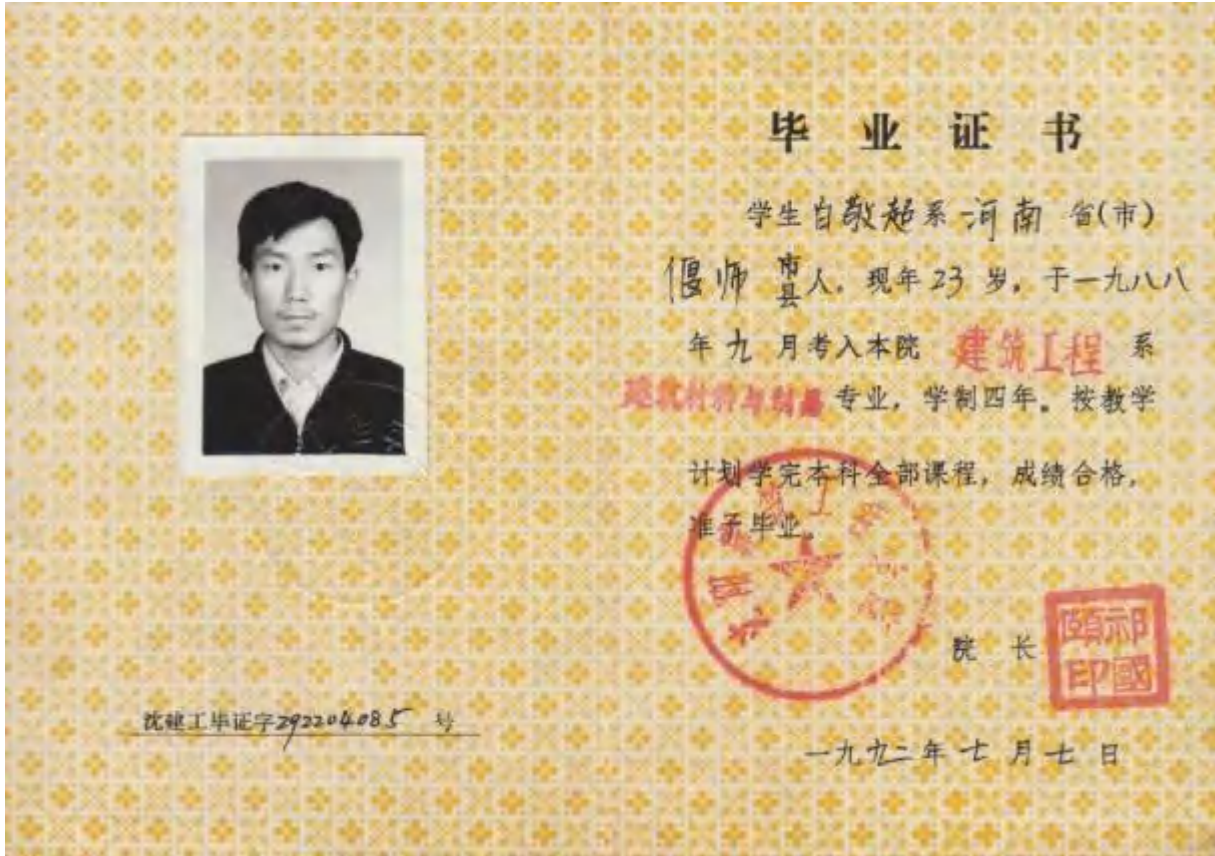 毕业证书
学生自敬超系河南省(市)
偃师市县人。现年23岁,于一九八八
年九月考入本院 建筑工程 系
建筑材料与制品专业,学制四年。按教学
计划学完本科全部课程,成绩合格,
准予毕业。
院长
祁國頤印
一九九二年七月七日
沈建工毕证字292204085号